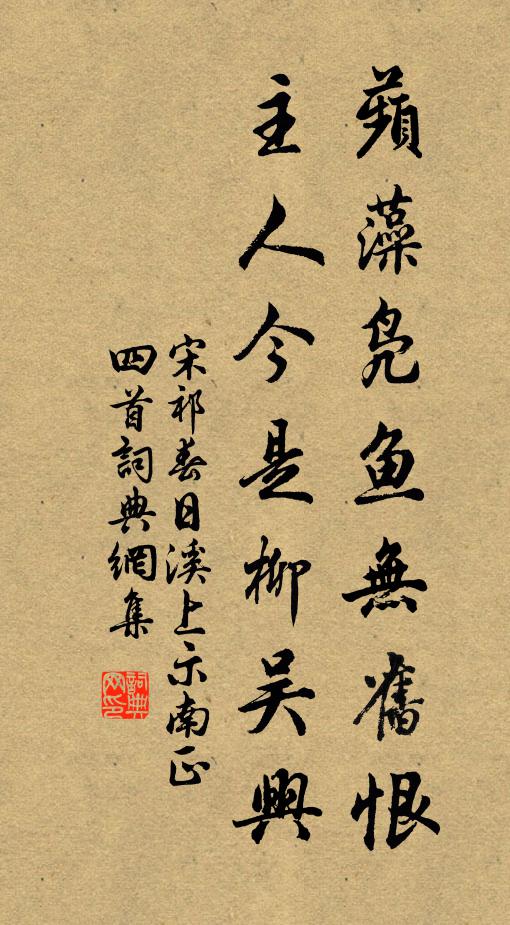 蘋藻凫鱼無舊恨
主人今是柳吴興
宋祁春日溪上示南正
四首詞典網集
詞典
网印